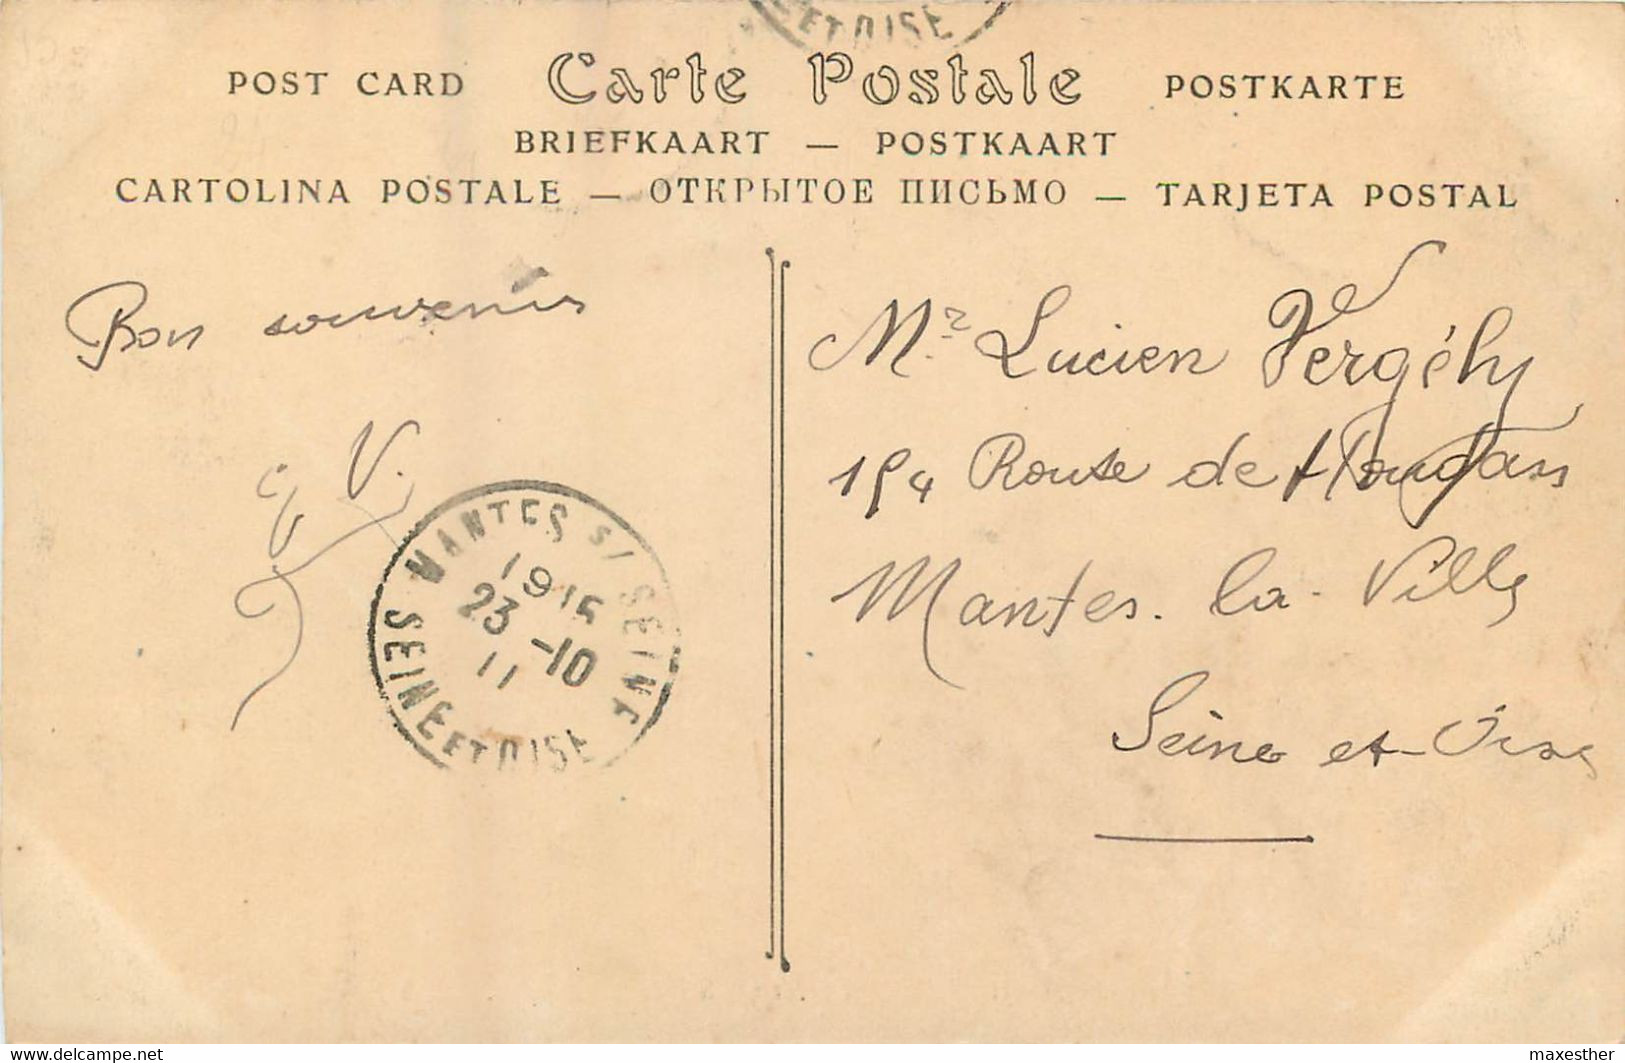 ET OISE
POST CARD Carte Postale POSTKARTE
BRIEFKAART — POSTKAART
CARTOLINA POSTALE — ОТКРЫТОЕ ПИСЬМО — TARJETA POSTAL
Bon souvenir
V.
MANTES S/ SEINE
19 15
23 -10
11
SEINE ET OISE
Mr Lucien Vergély
154 Route de Houdan
Mantes-la-Ville
Seine et Oise
www.delcampe.net
maxesther